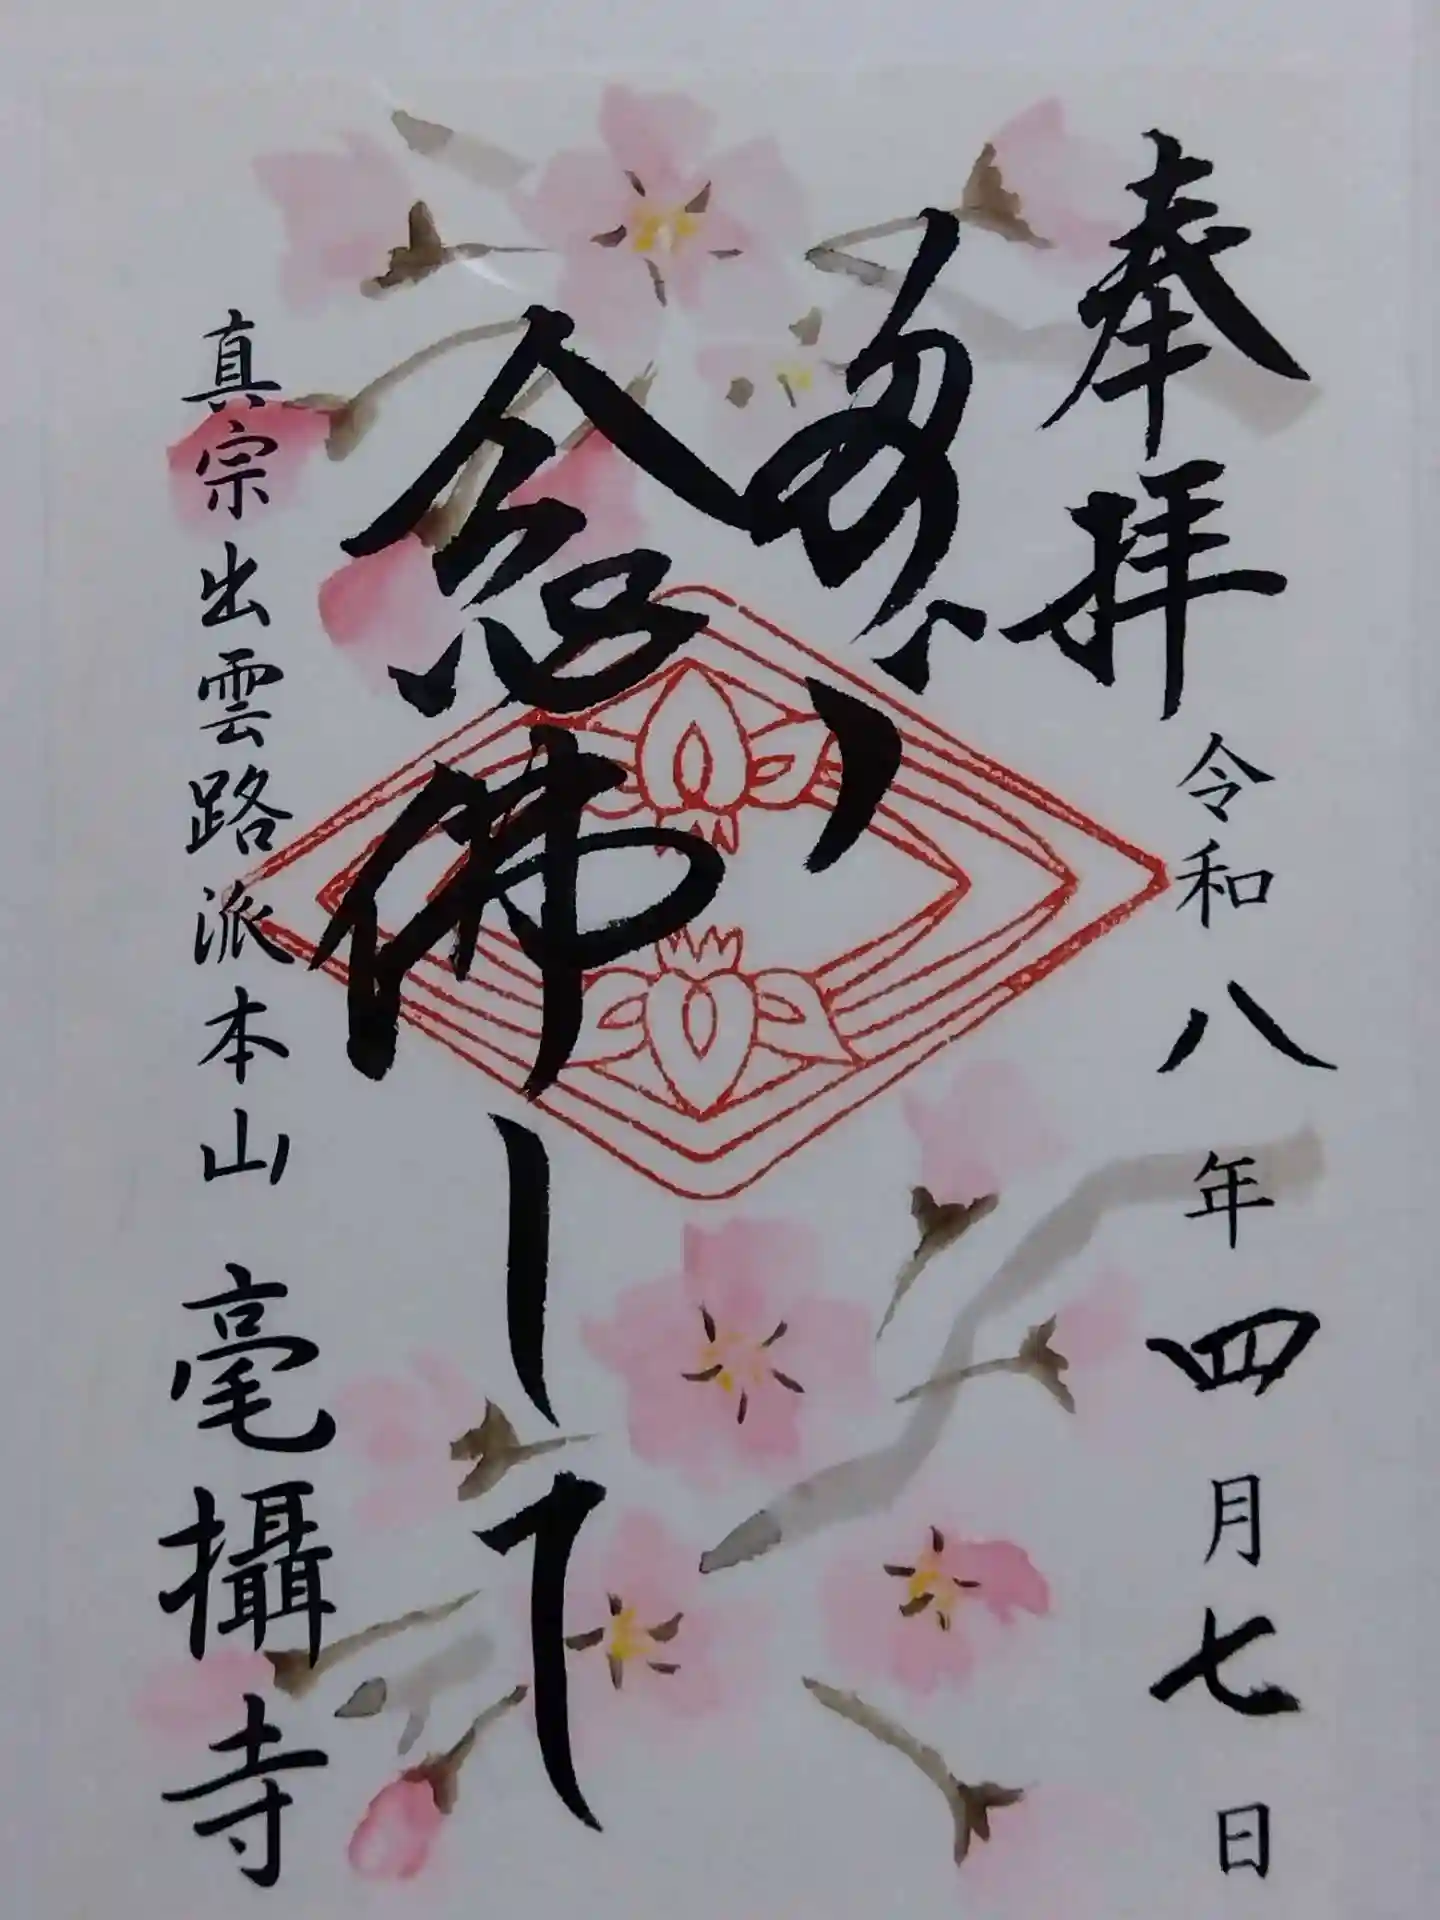 奉拝 令和八年四月七日
念佛して
真宗出雲路派本山 毫攝寺